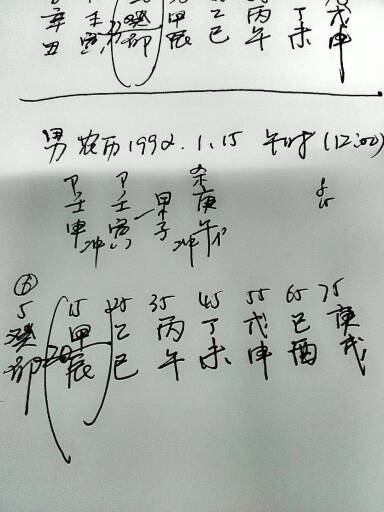 辛 壬 癸 甲 乙 丙 丁 戊
丑 寅 卯 辰 巳 午 未 申
男 农历1992.1.15 午时(12:00)
卩 卩 杀
壬 壬 甲 庚
申 寅 子 午
冲 冲
5 15 25 35 45 55 65 75
癸 甲 乙 丙 丁 戊 己 庚
卯 辰 巳 午 未 申 酉 戌